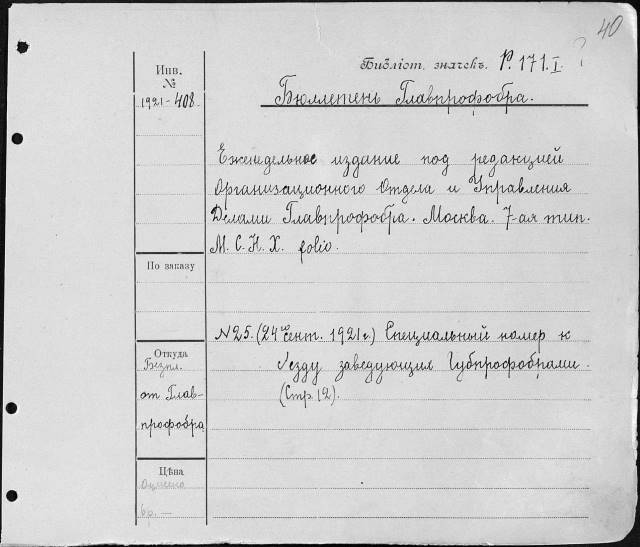 40
Библіот. значекъ. Р. 171.I. ?
Инв.
№
1921-408
Бюллетень Главпрофобра.
Еженедельное издание под редакцией
Организационного Отдела и Управления
Делами Главпрофобра. Москва. 7-ая тип.
М. С. Н. Х. folio.
По заказу
N25. (24 Сент. 1921г.) Специальный номер к
съезду заведующих Губпрофобрами.
(Стр. 12).
Откуда
Безпл.
от Глав-
профобра
Цѣна
Оценено
6р. —